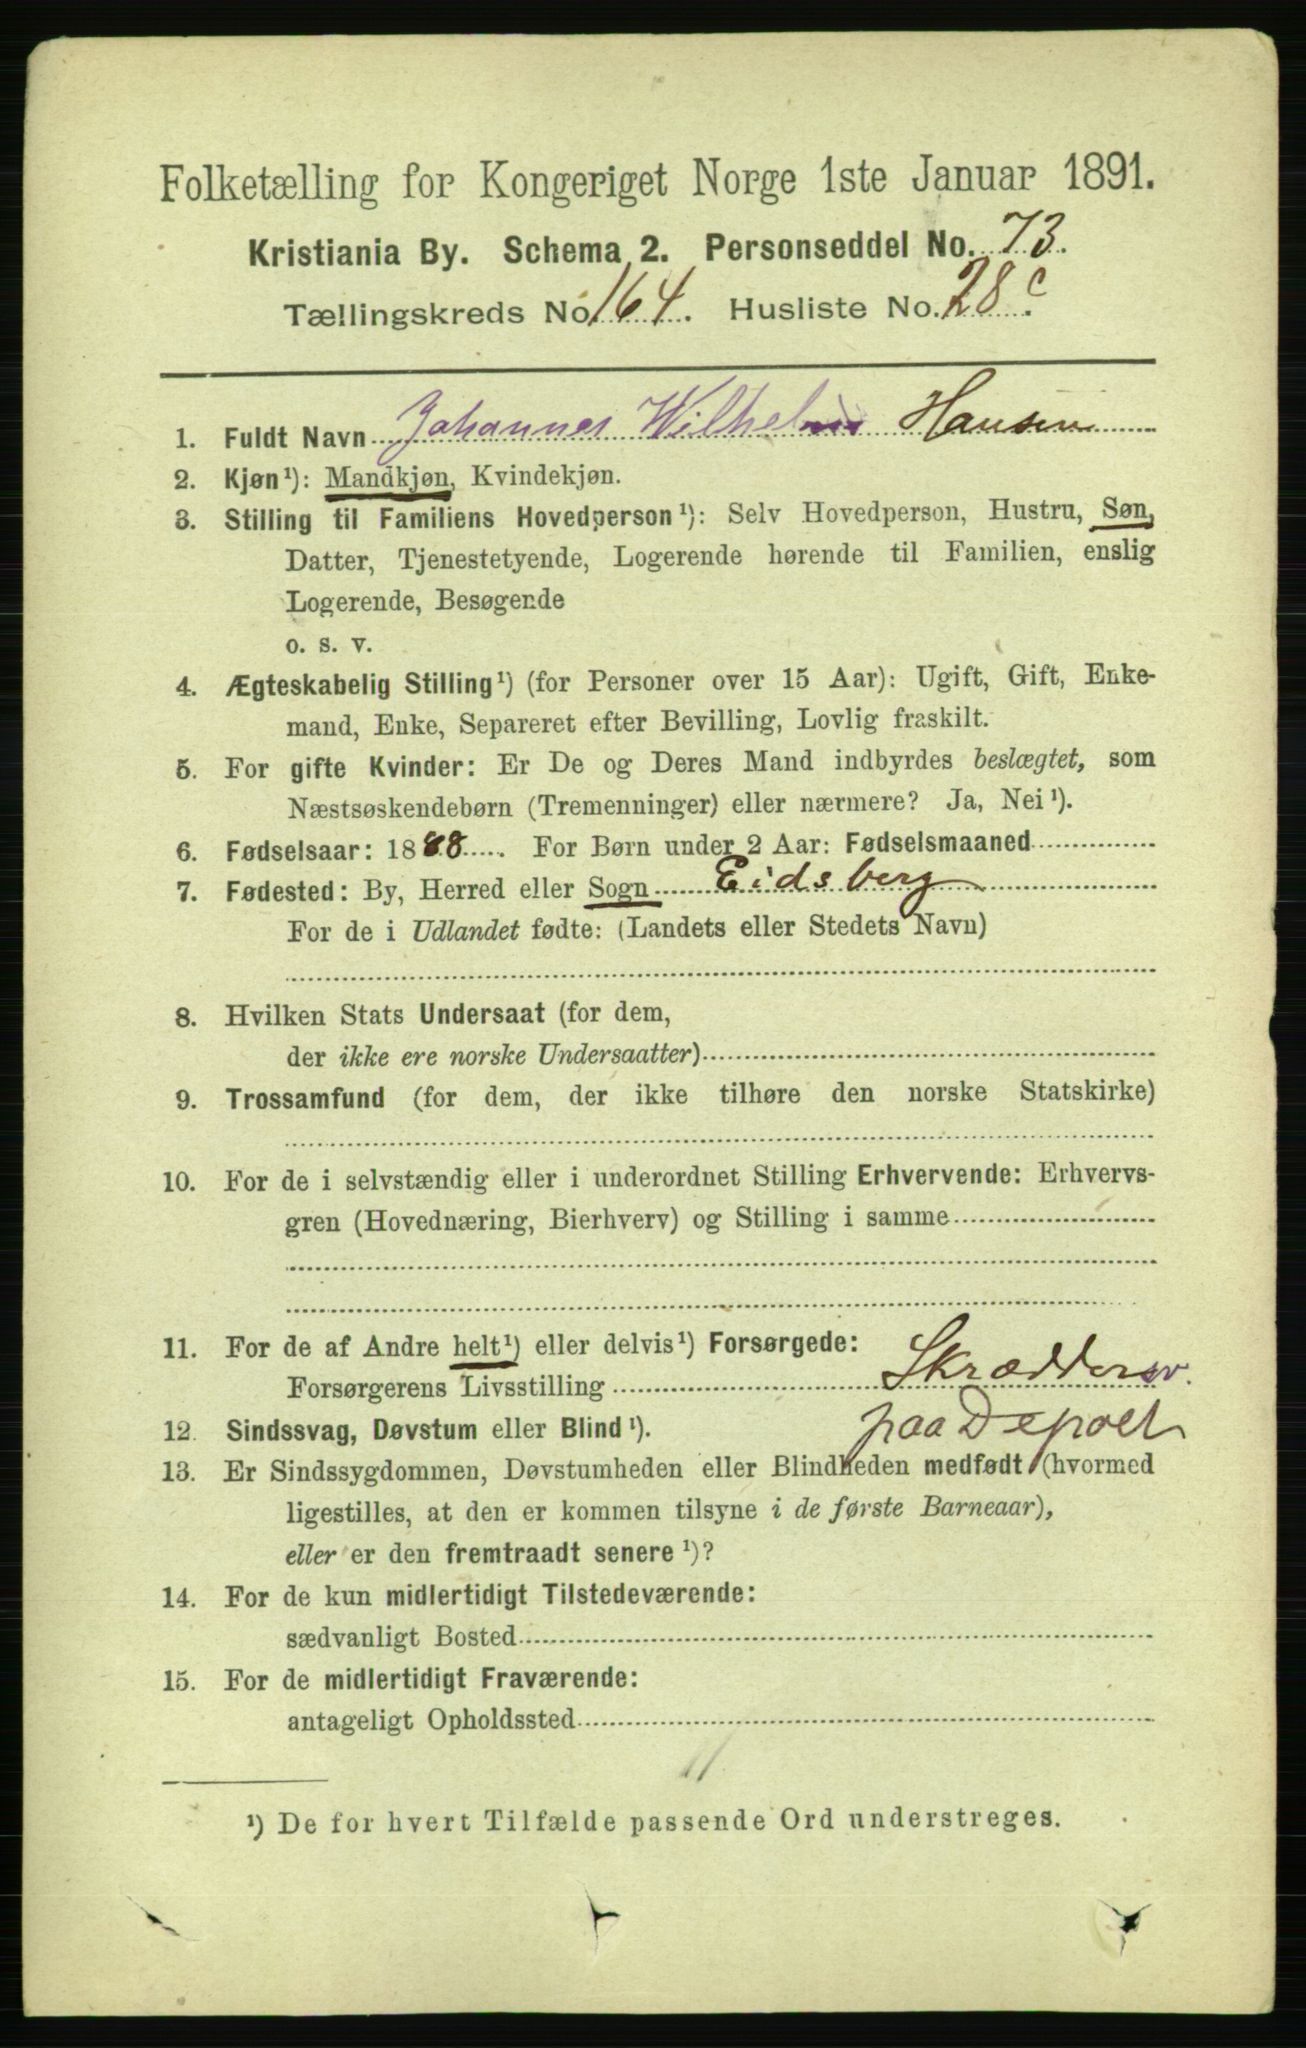 Folketælling for Kongeriget Norge 1ste Januar 1891.
Kristiania By. Schema 2. Personseddel No. 73.
Tællingskreds No. 164. Husliste No. 28 c.
1. Fuldt Navn Johannes Wilhelm Hansen
2. Kjøn¹): Mandkjøn, Kvindekjøn.
3. Stilling til Familiens Hovedperson¹): Selv Hovedperson, Hustru, Søn,
Datter, Tjenestetyende, Logerende hørende til Familien, enslig
Logerende, Besøgende
o. s. v.
4. Ægteskabelig Stilling¹) (for Personer over 15 Aar): Ugift, Gift, Enke-
mand, Enke, Separeret efter Bevilling, Lovlig fraskilt.
5. For gifte Kvinder: Er De og Deres Mand indbyrdes beslægtet, som
Næstsøskendebørn (Tremenninger) eller nærmere? Ja, Nei¹).
6. Fødselsaar: 1888. For Børn under 2 Aar: Fødselsmaaned
7. Fødested: By, Herred eller Sogn Eidsberg
For de i Udlandet fødte: (Landets eller Stedets Navn)
8. Hvilken Stats Undersaat (for dem,
der ikke ere norske Undersaatter)
9. Trossamfund (for dem, der ikke tilhøre den norske Statskirke)
10. For de i selvstændig eller i underordnet Stilling Erhvervende: Erhvervs-
gren (Hovednæring, Bierhverv) og Stilling i samme
11. For de af Andre helt¹) eller delvis¹) Forsørgede:
Forsørgerens Livsstilling Skræddersv.
paa Depoet
12. Sindssvag, Døvstum eller Blind¹).
13. Er Sindssygdommen, Døvstumheden eller Blindheden medfødt (hvormed
ligestilles, at den er kommen tilsyne i de første Barneaar),
eller er den fremtraadt senere¹)?
14. For de kun midlertidigt Tilstedeværende:
sædvanligt Bosted
15. For de midlertidigt Fraværende:
antageligt Opholdssted
¹) De for hvert Tilfælde passende Ord understreges.